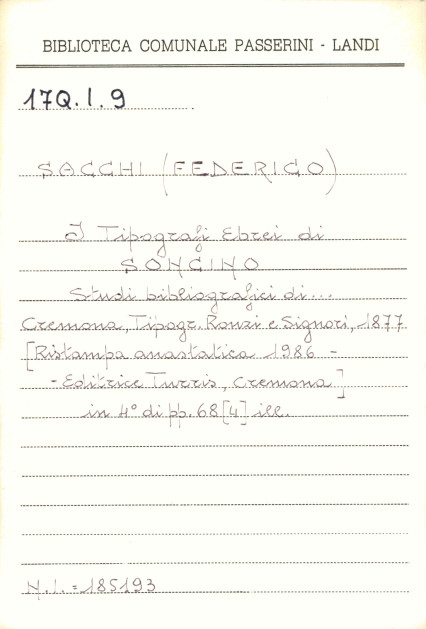 BIBLIOTECA COMUNALE PASSERINI - LANDI
17Q.I.9
SACCHI (FEDERICO)
I Tipografi Ebrei di
SONCINO
Studi bibliografici di...
Cremona, Tipogr. Ronzi e Signori, 1877
[Ristampa anastatica 1986 -
- Editrice Turris, Cremona]
in 4° di pp. 68 [4] ill.
N.I. = 185193